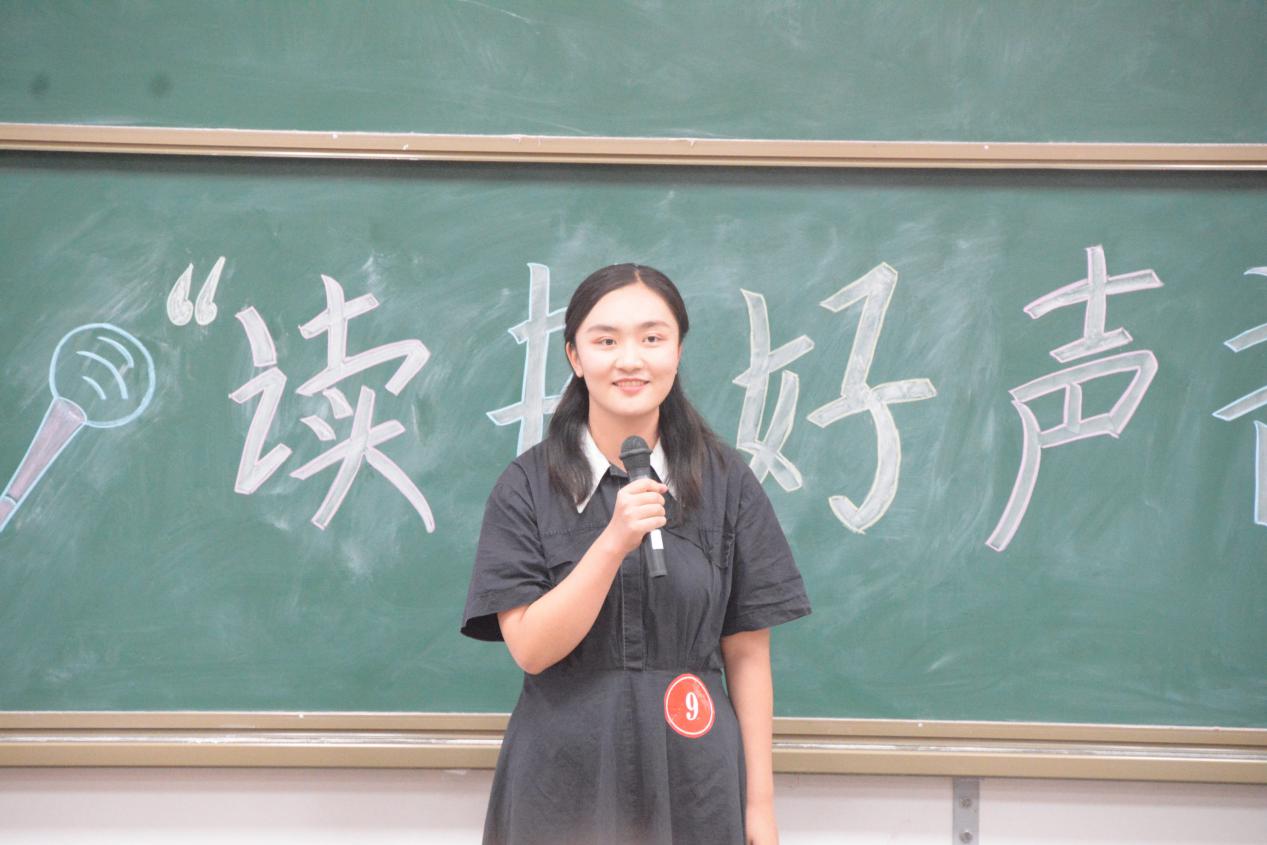 “读 好声
9